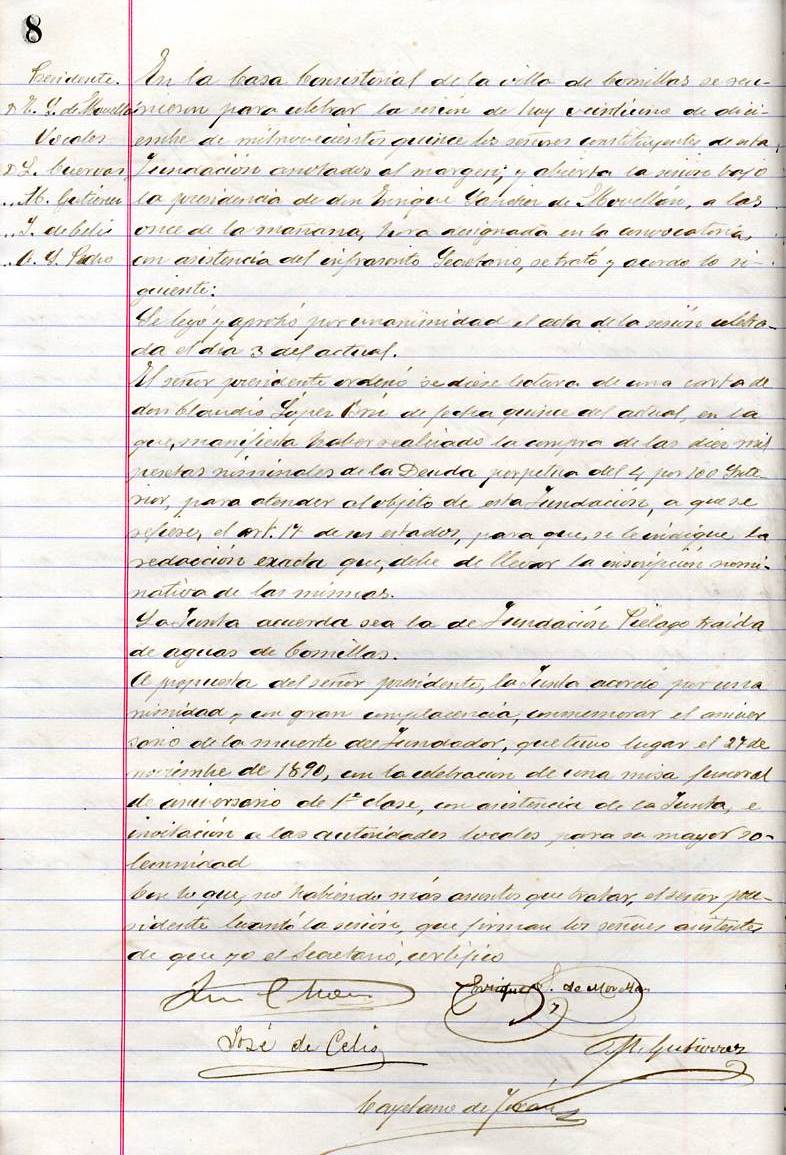 8
Presidente.
D. E. S. de Movellán
Vocales
D. L. Cuervas
" M. Gutierrez
" J. de Celis
" A. S. Pedro
En la Casa Consistorial de la villa de Comillas se reu-
nieron para celebrar la sesión de hoy veintiuno de dici-
embre de mil novecientos quince los señores constituyentes de esta
Fundación anotados al margen; y abierta la sesión bajo
la presidencia de don Enrique Sánchez de Movellán, a las
once de la mañana, hora designada en la convocatoria,
con asistencia del infrascrito Secretario, se trató y acordo lo si-
guiente:
Se leyó y aprobó por unanimidad el acta de la sesión celebra-
da el día 3 del actual.
El señor presidente ordenó se diese lectura de una carta de
don Claudio López Brú de fecha quince del actual, en la
que, manifiesta haber realizado la compra de las diez mil
pesetas nominales de la Deuda perpetua del 4 por 100 Inte-
rior, para atender al objeto de esta Fundación, a que se
refiere, el art. 17 de sus estados, para que, se le indique la
redacción exacta que, debe de llevar la inscripción nomi-
nativa de las mismas.
La Junta acuerda sea la de Fundación Piélago traida
de aguas de Comillas.
A propuesta del señor presidente, la Junta acordó por una
nimidad y con gran complacencia, conmemorar el aniver
sario de la muerte del Fundador, que tuvo lugar el 27 de
noviembre de 1890, con la celebración de una misa funeral
de aniversario de 1ª clase, con asistencia de la Junta, e
invitación a las autoridades locales para su mayor so-
lemnidad
Con lo que, no habiendo más asuntos que tratar, el señor pre-
sidente levantó la sesión, que firman los señores asistentes
de que yo el Secretario, certifico
Enrique S. de Movellan
José de Celis
M. Gutierrez
Cayetano de